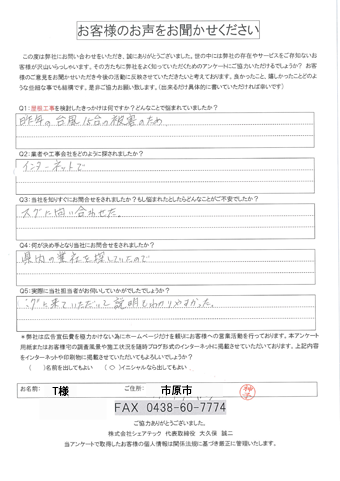 お客様のお声をお聞かせください
この度は弊社にお問い合わせをいただき、誠にありがとうございました。世の中には弊社の存在やサービスをご存知ないお
客様が沢山いらっしゃいます。その方たちに弊社をよく知っていただくためのアンケートにご協力いただけるでしょうか？ お客
様のご意見をお聞かせいただき今後の活動に反映させていただきたいと考えております。良かったこと、嬉しかったことどのよ
うな些細な事でも結構です。是非ご協力お願い致します。（出来るだけ具体的に書いていただければ幸いです）
Q1：屋根工事を検討したきっかけは何ですか？どんなことで悩まれていましたか？
昨年の台風15台の被害のため
Q2：業者や工事会社をどのように探されましたか？
インターネットで
Q3：当社を知りすぐにお問合せをされましたか？もし悩まれたとしたらどんなことがご不安でしたか？
スグに問い合わせた。
Q4：何が決め手となり当社にお問合せをされましたか？
県内の業社を探していたので
Q5：実際に当社担当者がお伺いしていかがでしたでしょうか？
スグに来ていただいて説明もわかりやすかった。
＊弊社は広告宣伝費を極力かけない為にホームページだけを頼りにお客様への営業活動を行っております。本アンケート
用紙またはお客様宅の調査風景や施工状況を随時ブログ形式のインターネットに掲載させていただいております。上記内容
をインターネットや印刷物に掲載させていただいてもよろしいでしょうか？
（　）名前を出してもよい　（ ○ ）イニシャルなら出してもよい
お名前： T様 ご住所： 市原市
FAX 0438-60-7774
ご協力ありがとうございました。
株式会社シェアテック 代表取締役 大久保 誠二
当アンケートで取得したお客様の個人情報は関係法規に基づき厳正に管理いたします。